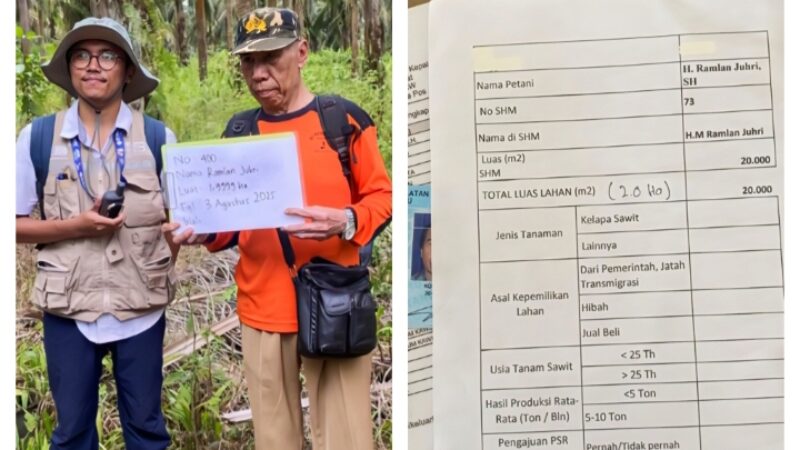 No : 400
Nama Ramlan Juhri
Luas : 1,9999 ha
Tgl 3 Agustus 2025
H. Ramlan Juhri,
Nama Petani
SH
No SHM
73
Nama di SHM
H.M Ramlan Juhri
Luas (m2)
20.000
SHM
TOTAL LUAS LAHAN (m2) (2.0 Ha) 20.000
Jenis Tanaman
Kelapa Sawit
Lainnya
Asal Kepemilikan
Lahan
Dari Pemerintah, Jatah
Transmigrasi
Hibah
Jual Beli
Usia Tanam Sawit
< 25 Th
> 25 Th
Hasil Produksi Rata-
Rata (Ton / Bln)
<5 Ton
5-10 Ton
Pengajuan PSR
Pernah/Tidak pernah